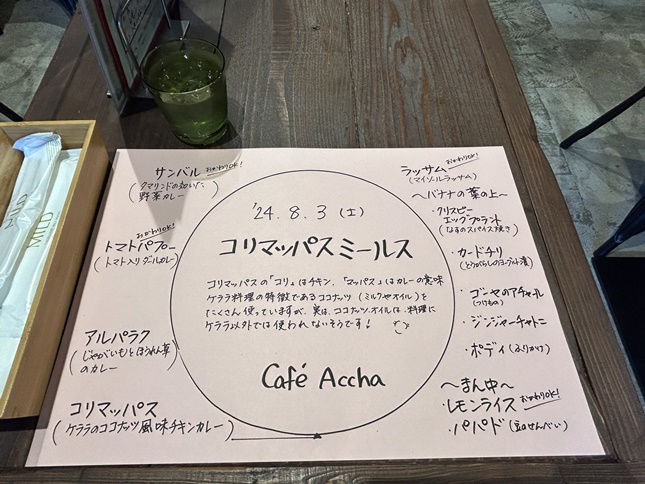 サンバル おかわりOK!
(タマリンドの効いた
野菜カレー)
おかわりOK!
トマトパプー
(トマト入りダルカレー)
アルパラク
(じゃがいもとほうれん草
のカレー)
コリマッパス
(ケララのココナッツ風味チキンカレー)
'24.8.3(土)
コリマッパスミールス
コリマッパスの「コリ」はチキン、「マッパス」はカレーの意味
ケララ料理の特徴であるココナッツ(ミルクやオイル)を
たくさん使っていますが、実は、ココナッツオイルは、料理に
ケララ以外では使われないそうです!
Café Accha
ラッサム おかわりOK!
(マイソールラッサム)
〜バナナの葉の上〜
・クリスピー
エッグプラント
(なすのスパイス焼き)
・カードチリ
(とうがらしのヨーグルト漬)
・ゴーヤのアチャール
(つけもの)
・ジンジャーチャトニ
・ポディ(ふりかけ)
〜まん中〜
・レモンライス おかわりOK!
・パパド(豆のせんべい)
MILD
MILD